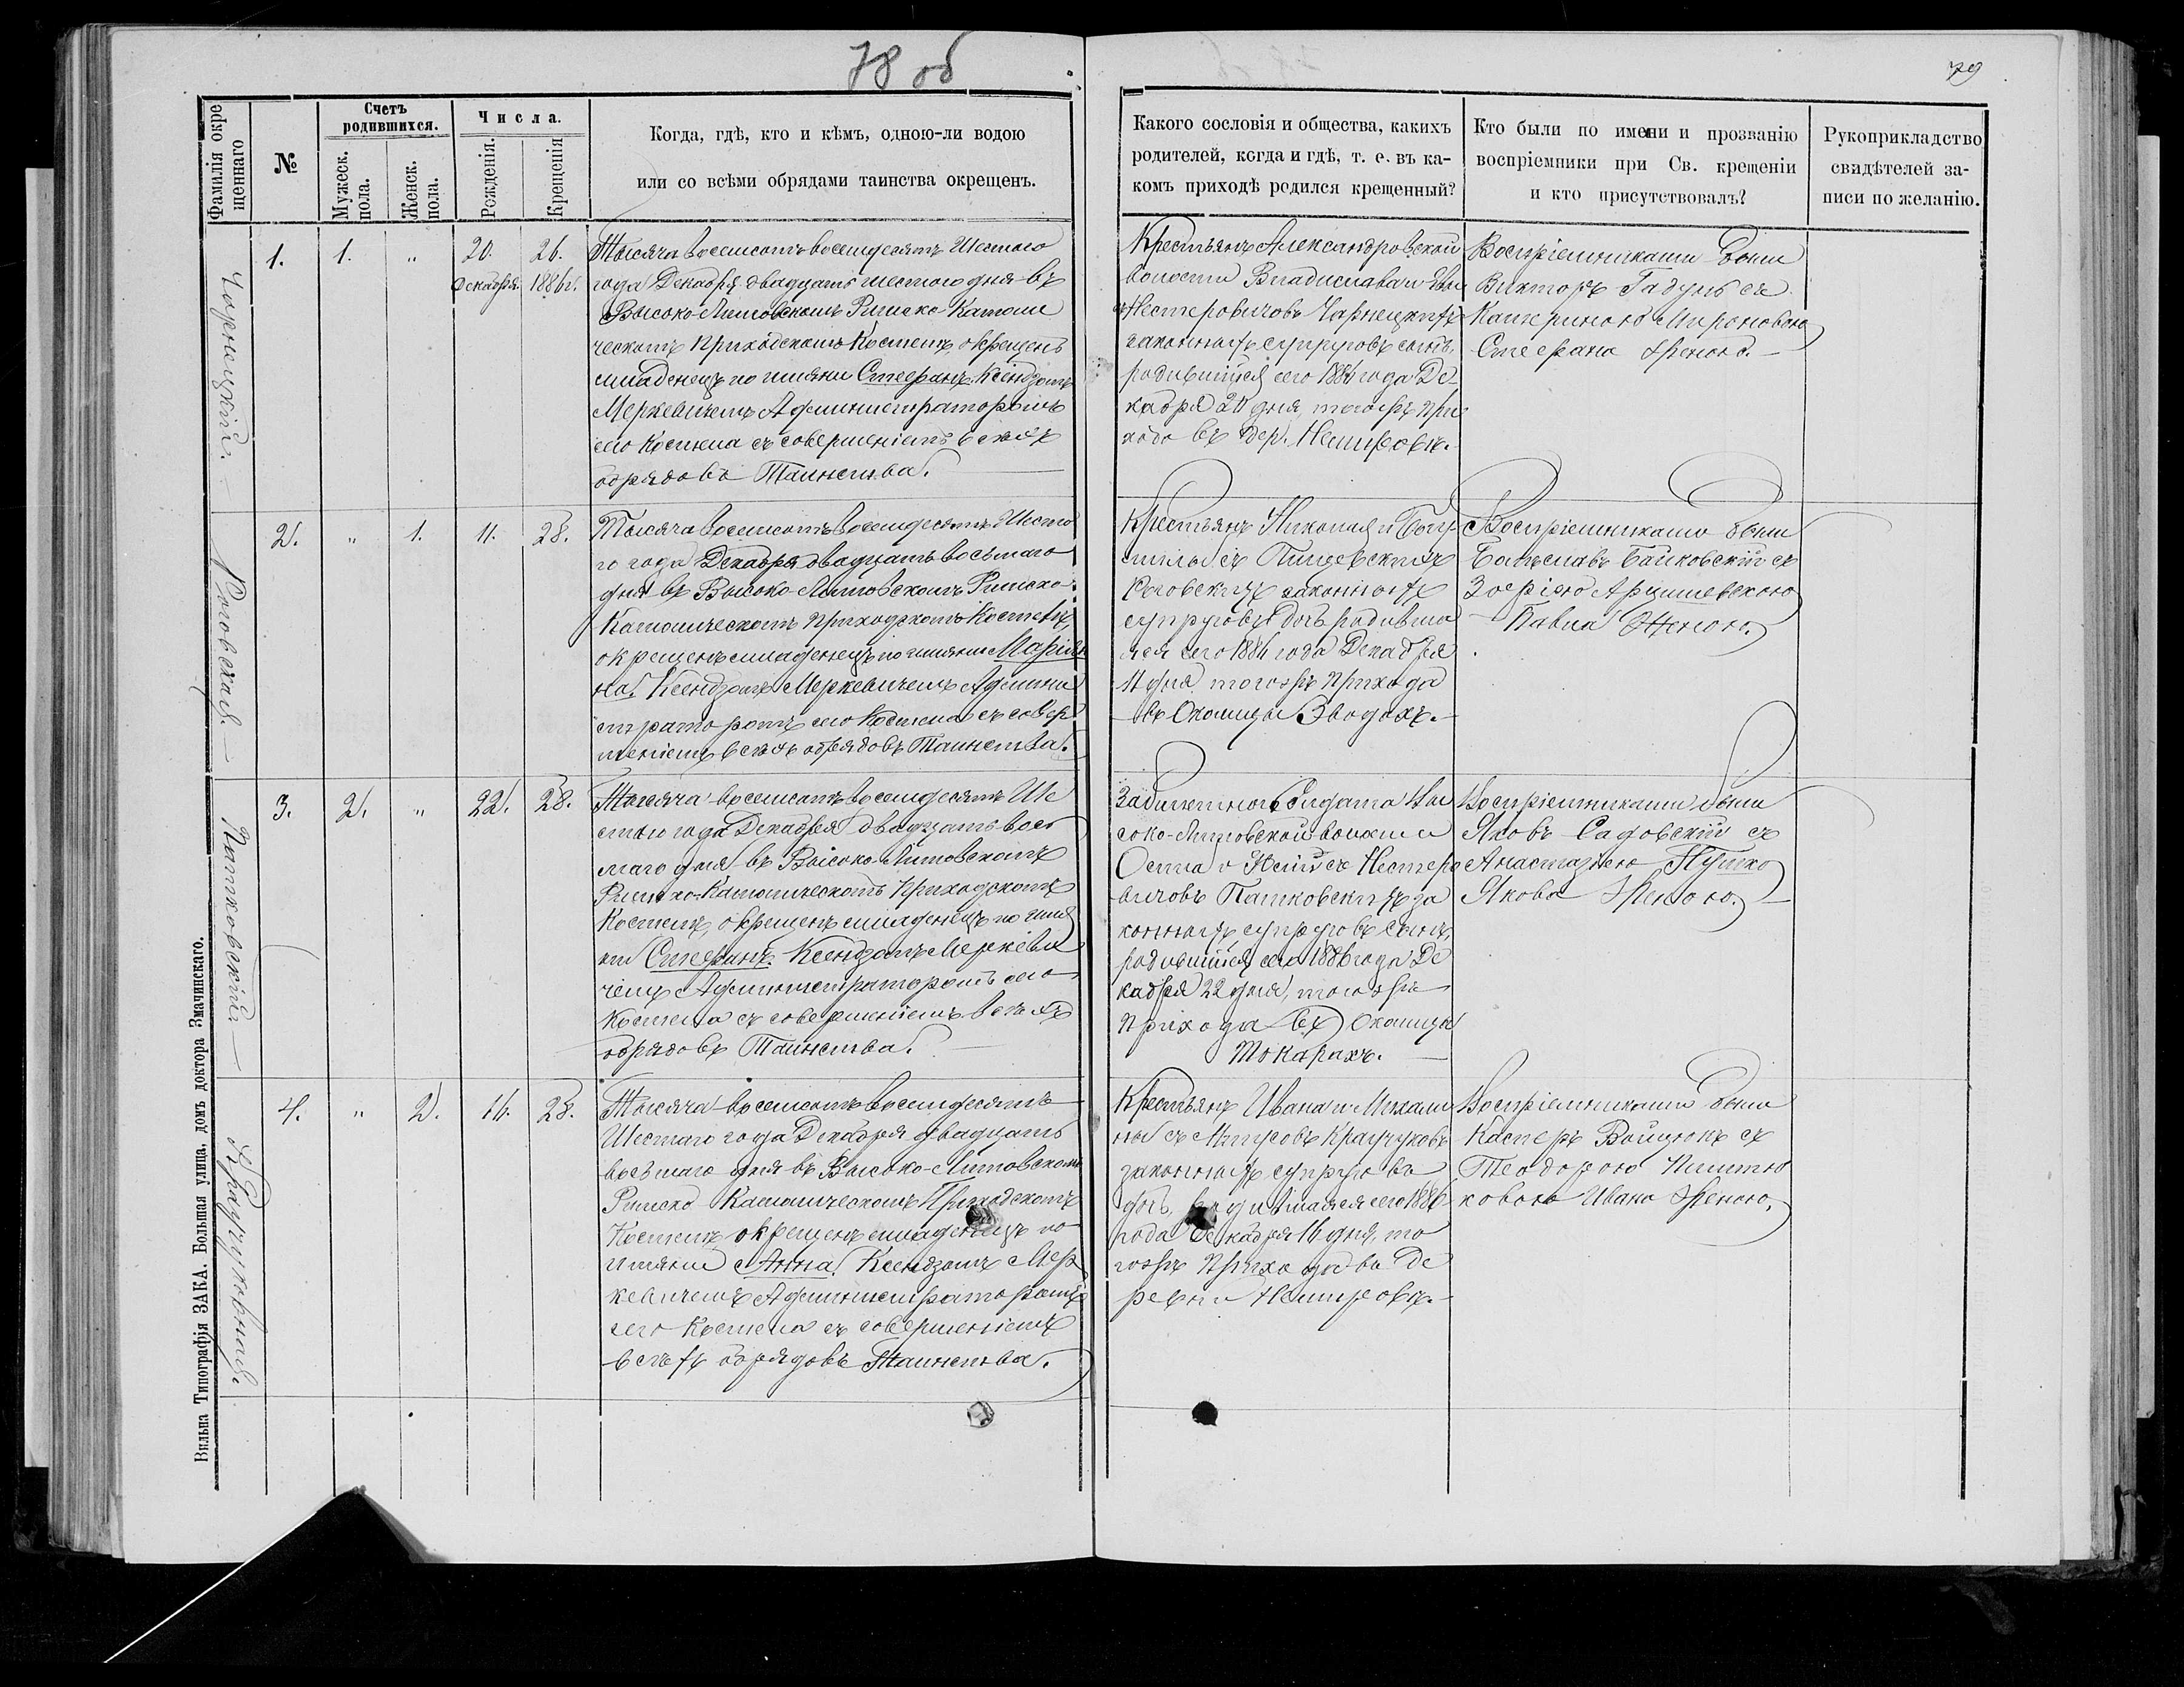 78 об
79
Фамилія окре
щеннаго
№
Счетъ
родившихся.
Мужеск.
пола.
Женск.
пола.
Числа.
Рожденія.
Крещенія
Когда, гдѣ, кто и кѣмъ, одною-ли водою
или со всѣми обрядами таинства окрещенъ.
Какого сословія и общества, какихъ
родителей, когда и гдѣ, т. е. въ ка-
комъ приходѣ родился крещенный?
Кто были по имени и прозванію
воспріемники при Св. крещеніи
и кто присутствовалъ?
Рукоприкладство
свидѣтелей за-
писи по желанію.
Чорнацкій.
1. 1. " 20. 26.
Декабря. 1886 г.
Тысяча восемсотъ восемдесятъ Шестого
года Декабря двадцать шестого дня въ
Высоко-Литовскомъ Римско-Католи
ческомъ приходскомъ Костелѣ, окрещенъ
младенецъ по имяни Стефанъ Ксендзомъ
Меркевичемъ Администраторомъ
сего Костела съ совершеніемъ всѣхъ
обрядовъ Таинства.
Крестьянъ Александровской
волости Владислава и
Нестеровичовъ Чарнецкихъ
законныхъ супруговъ сынъ,
родившійся сего 1886 года Де
кабря 20 дня, тогожъ при
хода въ дер. Немировѣ.
Воспріемниками были
Викторъ Гадунъ съ
Катериною Мироновою
Стефана женою.
Роговская.
2. " 1. 11. 28.
Тысяча восемсотъ восемдесятъ Шесто
го года Декабря двадцать восьмаго
дня въ Высоко-Литовскомъ Римско-
Католическомъ приходскомъ Костелѣ,
окрещенъ младенецъ по имяни Маріян
на. Ксендзомъ Меркевичемъ Админи
страторомъ сего Костела съ совер
шеніемъ всѣхъ обрядовъ Таинства.
Крестьянъ Николая и Богу
милы съ Пищевскихъ
Роговскихъ законныхъ
супруговъ дочь родивша
яся сего 1886 года Декабря
11 дня тогожъ прихода
въ Околицы Зводахъ.
Воспріемниками были
Болеславъ Байковскій съ
Зофіею Арцишевскою
Павла Женою.
Патковскій
3. 2. " 22. 28.
Тысяча восемсотъ восемдесятъ Ше
стого года Декабря двадцать вось
маго дня въ Высоко-Литовскомъ
Римско-Католическомъ Приходскомъ
Костелѣ, окрещенъ младенецъ по имя
ни Стефанъ. Ксендзомъ Меркеви
чемъ Администраторомъ сего
Костела съ совершеніемъ всѣхъ
обрядовъ Таинства.
Забилетного Солдата Вы
соко-Литовской волости
Осипа и съ Нестеро
вичовъ Патковскихъ за
конныхъ супруговъ сынъ,
родившійся сего 1886 года Де
кабря 22 дня, тогожъ
Прихода въ Околицы
Токарахъ.
Воспріемниками были
Яковъ Садовскій съ
Анастазіею Путко
Якова Женою.
Крапчуковная.
4. " 2. 16. 28.
Тысяча восемсотъ восемдесятъ
Шестаго года Декабря двадцать
восьмаго дня въ Высоко-Литовскомъ
Римско Католическомъ Приходскомъ
Костелѣ окрещенъ младенецъ по
имяни Анна. Ксендзомъ Мер
кевичемъ Администраторомъ
сего Костела съ совершеніемъ
всѣхъ обрядовъ Таинства.
Крестьянъ Ивана и Михали
ны съ
законныхъ супруговъ
дочь, родившаяся сего 1886
года Декабря 16 дня, то
гожъ Прихода въ Де
ревни Немировѣ.
Воспріемниками были
Касперъ Войцюкъ съ
Теодорою
ковою Ивана Женою.
Вильна Типографія ЗАКА. Большая улица, домъ доктора Змачинскаго.